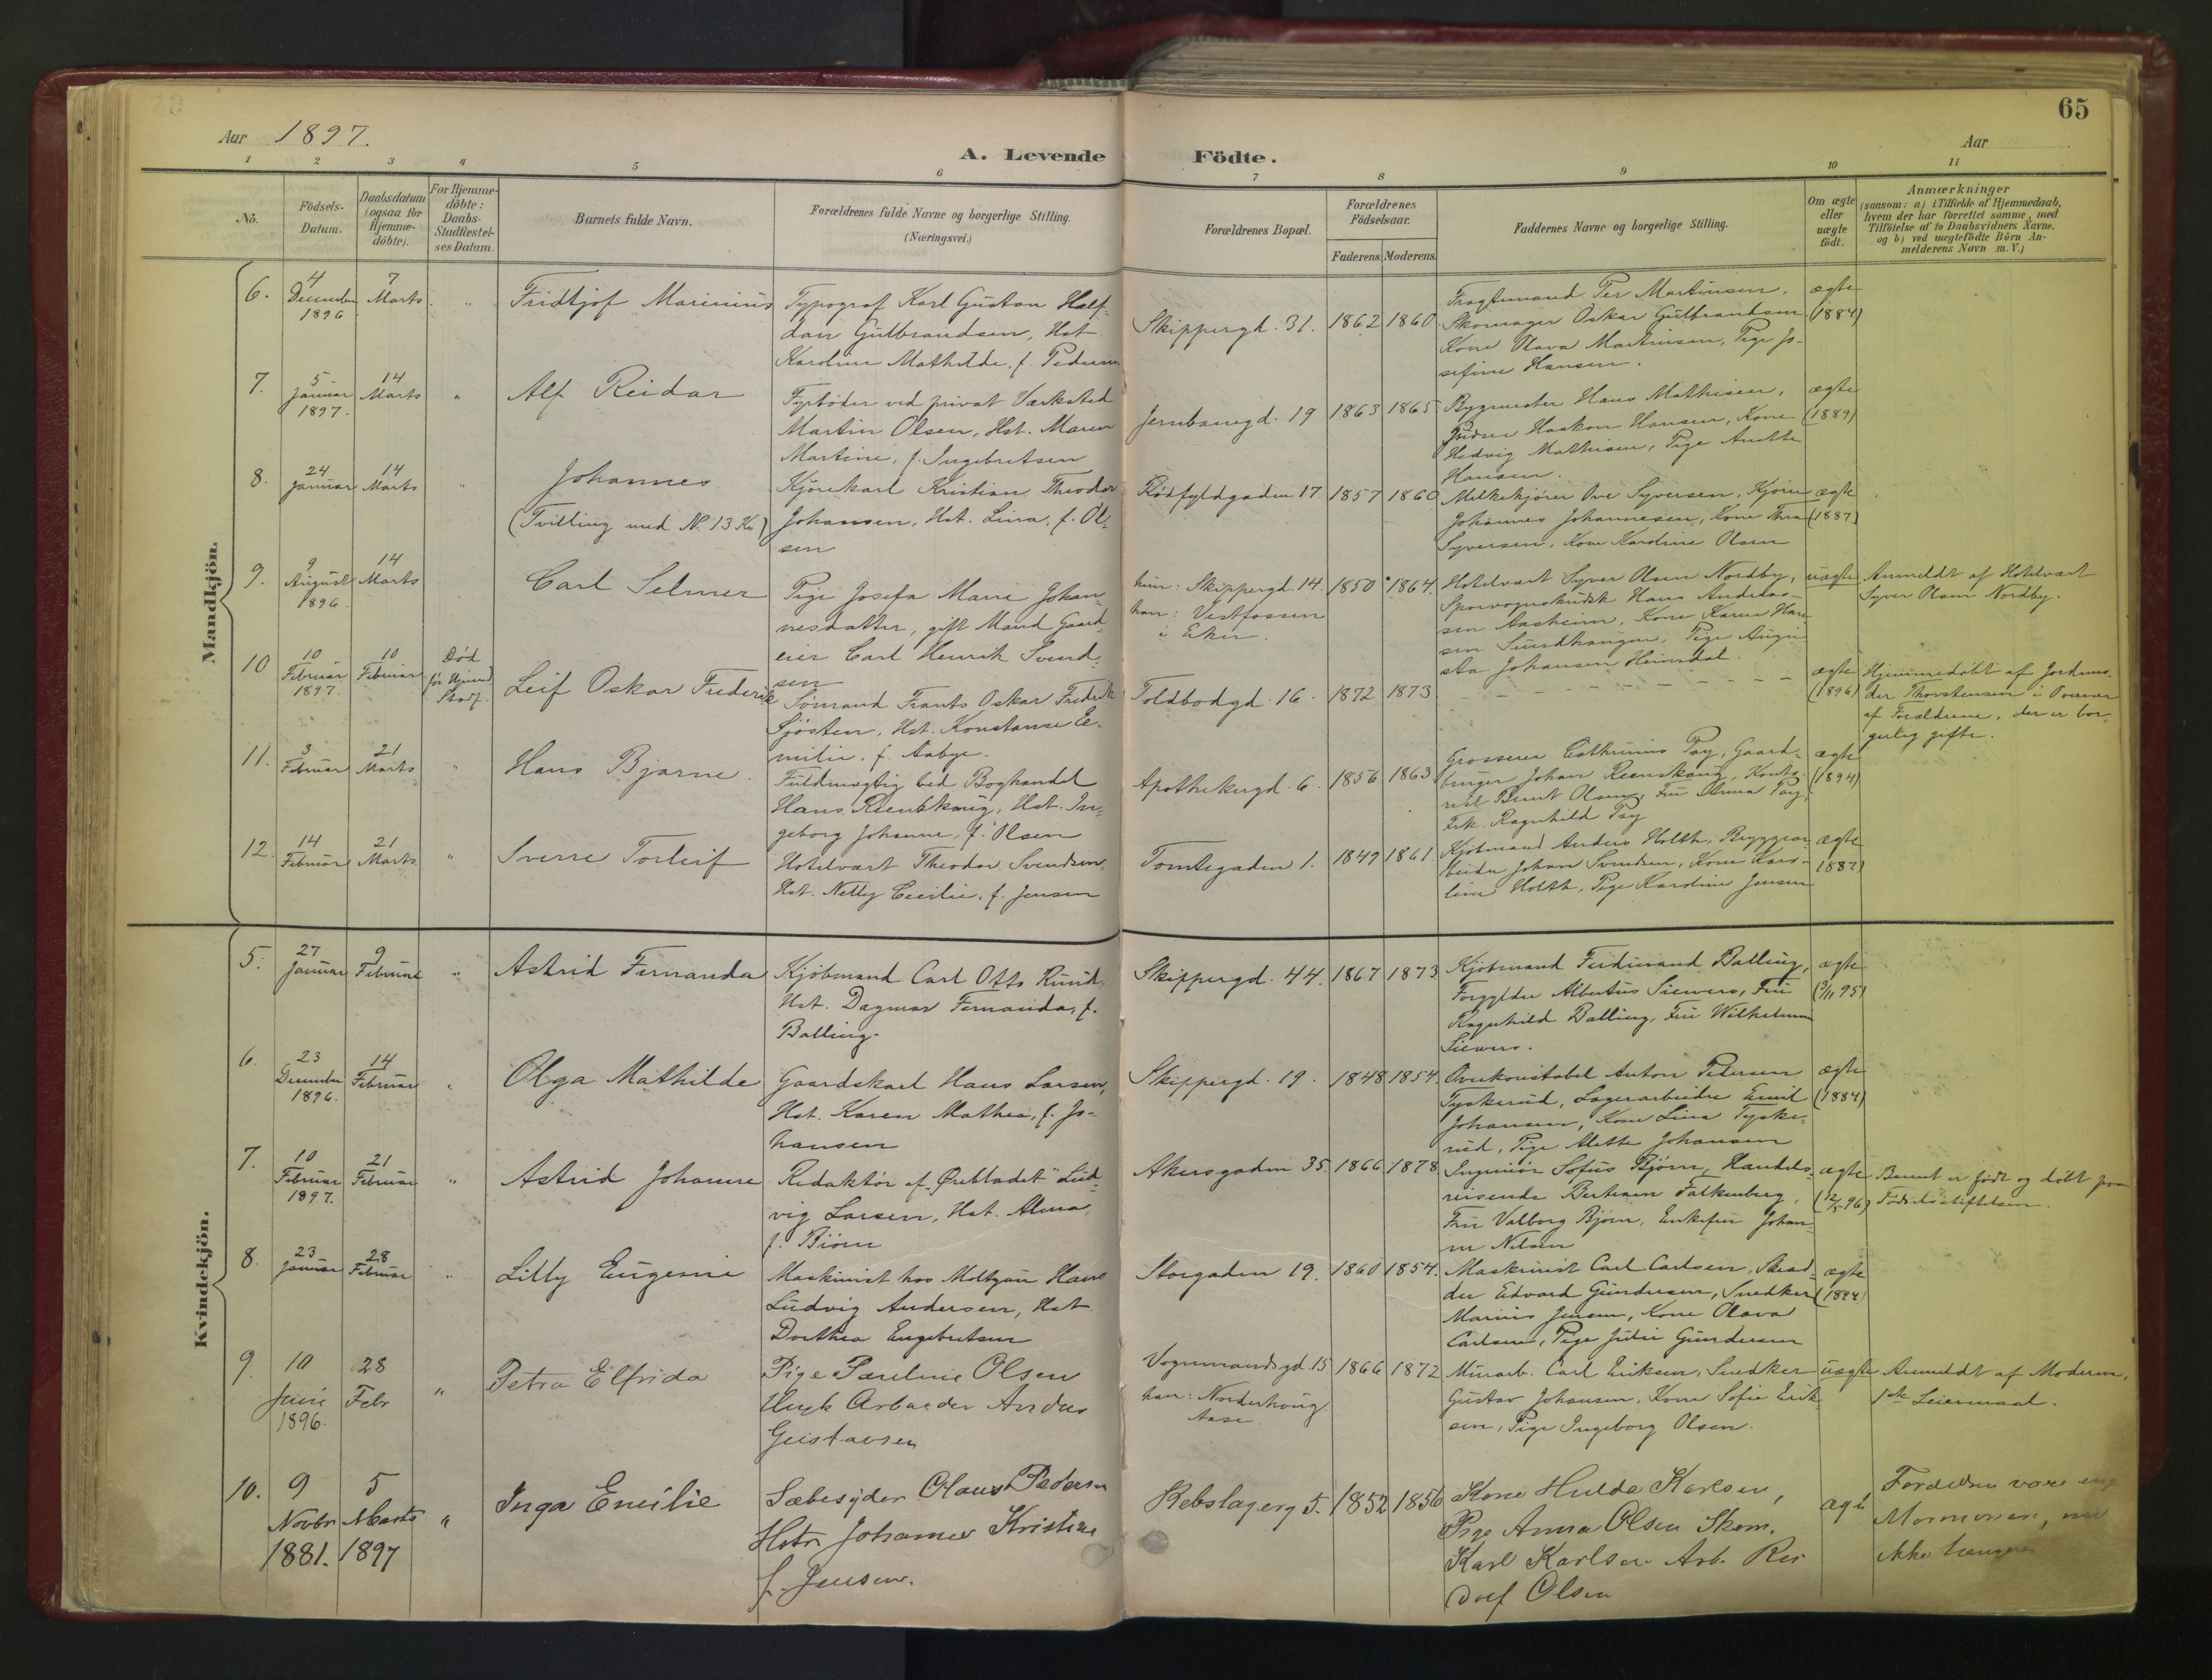 65
Aar 1897.
A. Levende Födte.
Aar
1 2 3 4 5 6 7 8 9 10 11
No.
Födsels-
Datum.
Daabsdatum
(ogsaa for
Hjemme-
döbte).
For Hjemme-
döbte:
Daabs-
Stadfæstel-
ses Datum.
Barnets fulde Navn.
Forældrenes fulde Navne og borgerlige Stilling.
(Næringsvei.)
Forældrenes Bopæl.
Forældrenes
Födselsaar.
Faderens. Moderens.
Faddernes Navne og borgerlige Stilling.
Om ægte
eller
uægte
födt.
Anmærkninger
(saasom: a) i Tilfælde af Hjemmedaab,
hvem der har forrettet samme, med
Tilföielse af to Daabsvidners Navne.
og b) ved uægtefödte Börn An-
melderens Navn m. V.)
Mandkjön.
6.
4
December
1896
7
Marts
"
Fridtjof Marinius
Typograf Karl Gustav Half-
dan Gulbrandsen, Hst.
Karoline Mathilde, f. Pedersen
Skippergd. 31.
1862
1860
Fragtemand Per Martinsen,
Skomager Oskar Gulbrandsen
Kone Olava Martinsen, Pige Jo-
sefine Hansen.
ægte
(1884)
7.
5
Januar
1897.
14
Marts
"
Alf Reidar
Fyrbøder ved privat Værksted
Martin Olsen, Hst. Maren
Martine, f. Ingebretsen
Jernbanegd. 19
1863
1865
Bygmester Hans Mathisen,
Haakon Hansen, Kone
Hedvig Mathisen, Pige Anette
Hansen.
ægte
(1889)
8.
24
Januar
14
Marts
"
Johannes
(Tvilling med No. 13 Kv.)
Kjørekarl Kristian Theodor
Johansen, Hst. Lina, f. Ol-
sen
Rødfyldgaden 17.
1857
1860
Melkekjører Ove Syversen, Kjører
Johannes Johannesen, Kone Thea
Syversen, Kone Karoline Olsen
ægte
(1887)
9.
9
August
1896.
14
Marts
Carl Selmer
Pige Josefa Marie Johan-
nesdatter, gift Mand Gaard-
eier Carl Henrik Svend-
sen
hun: Skippergd. 14.
han: Vestfossen
i Eker.
1850
1864.
Hotelvært Syver Olsen Nordby,
Sporvognskudsk Hans Andreas-
sen Aasheim, Kone Karen Han-
sen Sundhaugen, Pige Augu-
sta Johansen Heimdal.
uægte
Anmeldt af Hotelvært
Syver Olsen Nordby.
10
10
Februar
1897.
10
Februar
Død
før Hjemmed.
Stadf.
Leif Oskar Frederik
Sömand Frants Oskar Fredrik
Sjösten, Hst. Konstanse E-
milie, f. Aabye.
Toldbodgd. 16.
1872
1873
- - - - - - - -
ægte
(1896)
Hjemmedøbt af Jordmo-
der Thorstensen i Overvær
af Forældrene, der er bor-
gerlig gifte.
11.
3
Februar
21
Marts
"
Hans Bjarne.
Fuldmægtig ved Boghandel
Hans Reenskaug, Hst. In-
geborg Johanne, f. Olsen
Apothekergd. 6.
1856
1863.
Grosserer Cathrinus Fay, Gaard-
bruger Johan Reenskaug, Konto-
rist Bernt Olsen, Fru Fay,
Frk. Ragnhild Fay
ægte
(1894)
12.
14
Februar
21
Marts
"
Sverre Torleif
Hotelvært Theodor Svendsen,
Hst. Nelly Cecilie, f. Jensen
Tomtegaden 1.
1849
1861.
Kjøbmand Anders Holth, Bryggear-
beider Johan Svendsen, Kone Karo-
line Holth, Pige Karoline Jensen
ægte
1882)
Kvindekjön.
5.
27
Januar
9
Februar
"
Astrid Fernanda
Kjøbmand Carl Otto Ruud,
Hst. Dagmar Fernanda, f.
Balling.
Skippergd. 44.
1867
1873
Kjøbmand Ferdinand Balling,
Forgylder Albertus Siewers, Fru
Ragnhild Balling, Fru Wilhelmine
Siewers.
ægte
(3/11 95)
6.
23
December
1896.
14
Februar
"
Olga Mathilde
Gaardskarl Hans Larsen,
Hst. Karen Mathea, f. Jo-
hansen
Skippergd. 19.
1848
1854.
Overkonstabel Anton Petersen
Tyskerud, Lagerarbeider Emil
Johansen, Kone Lina Tyske-
rud, Pige Alette Johansen
ægte
(1884)
7.
10
Februar
1897.
21
Februar
"
Astrid Johanne
Redaktør af "Ørebladet" Lud-
vig Larsen, Hst. Alma,
f. Bjørn
Akersgaden 35.
1866
1878
Ingeniør Sofus Bjørn, Handels-
reisende Bertram Falkenberg,
Fru Valborg Bjørn, Enkefru Johan-
ne Nilsen
ægte
(12/5 96)
Barnet er født og døbt paa
Fødselsstiftelsen.
8.
23
Januar
28
Februar
"
Lilly Eugenie
Maskinist hos Moltzau Hans
Ludvig Andersen, Hst
Dorthea Engebretsen
Storgaden 19.
1860
1854.
Maskinist Carl Carlsen, Skræd-
der Edvard Gundersen, Snedker
Marius Jensen, Kone Olava
Carlsen, Pige Julie Gundersen
ægte
(1894)
9.
10
Juni
1896.
28
Febr
"
Petra Elfrida
Pige Pauline Olsen
Ungk Arbeider Anders
Gustavsen
Vognmandsgd. 15.
han: Norderhoug
Aase.
1866
1872
Murarb. Carl Eriksen, Snedker
Gustav Johansen, Kone Sofie Erik-
sen, Pige Ingeborg Olsen.
uægte
Anmeldt af Moderen,
1ste Leiermaal.
10.
9
Novbr
1881.
5
Marts
1897
"
Inga Emilie
Sæbesyder Olaus Pedersen
Hstr Johanne Kristine
f. Jensen.
Rebslagerg 5.
1852
1856
Kone Hulda Karlsen,
Pige Anna Olsen Skom.
Karl Karlsen Arb. Ru-
dolf Olsen
ægte
Forældre vare eng
Mormonere, men
ikke længere